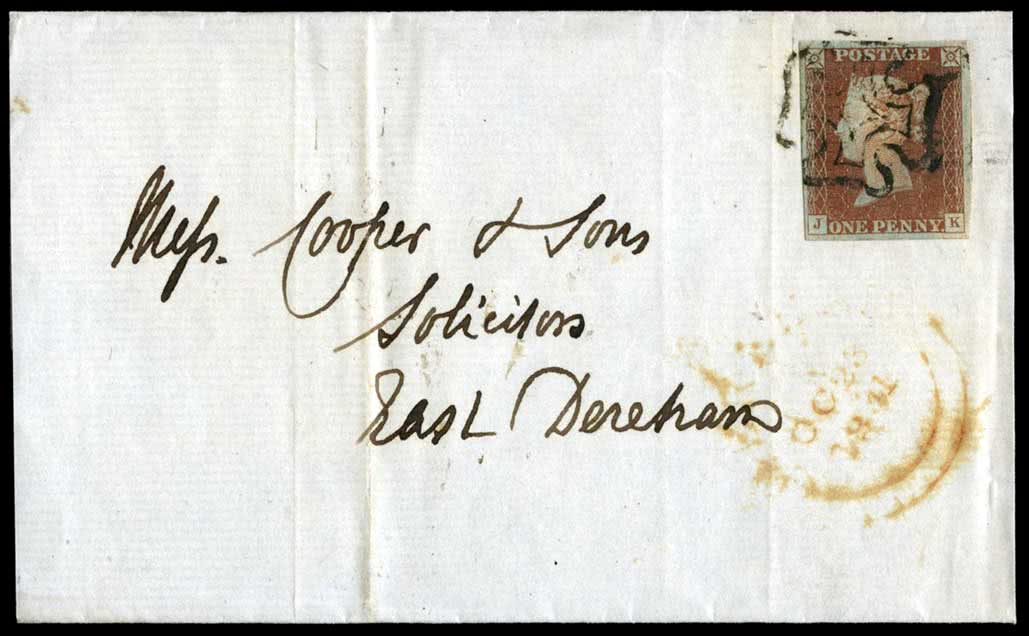 POSTAGE
J ONE PENNY K
Mess. Cooper & Sons
Solicitors
East Dereham
OC 23